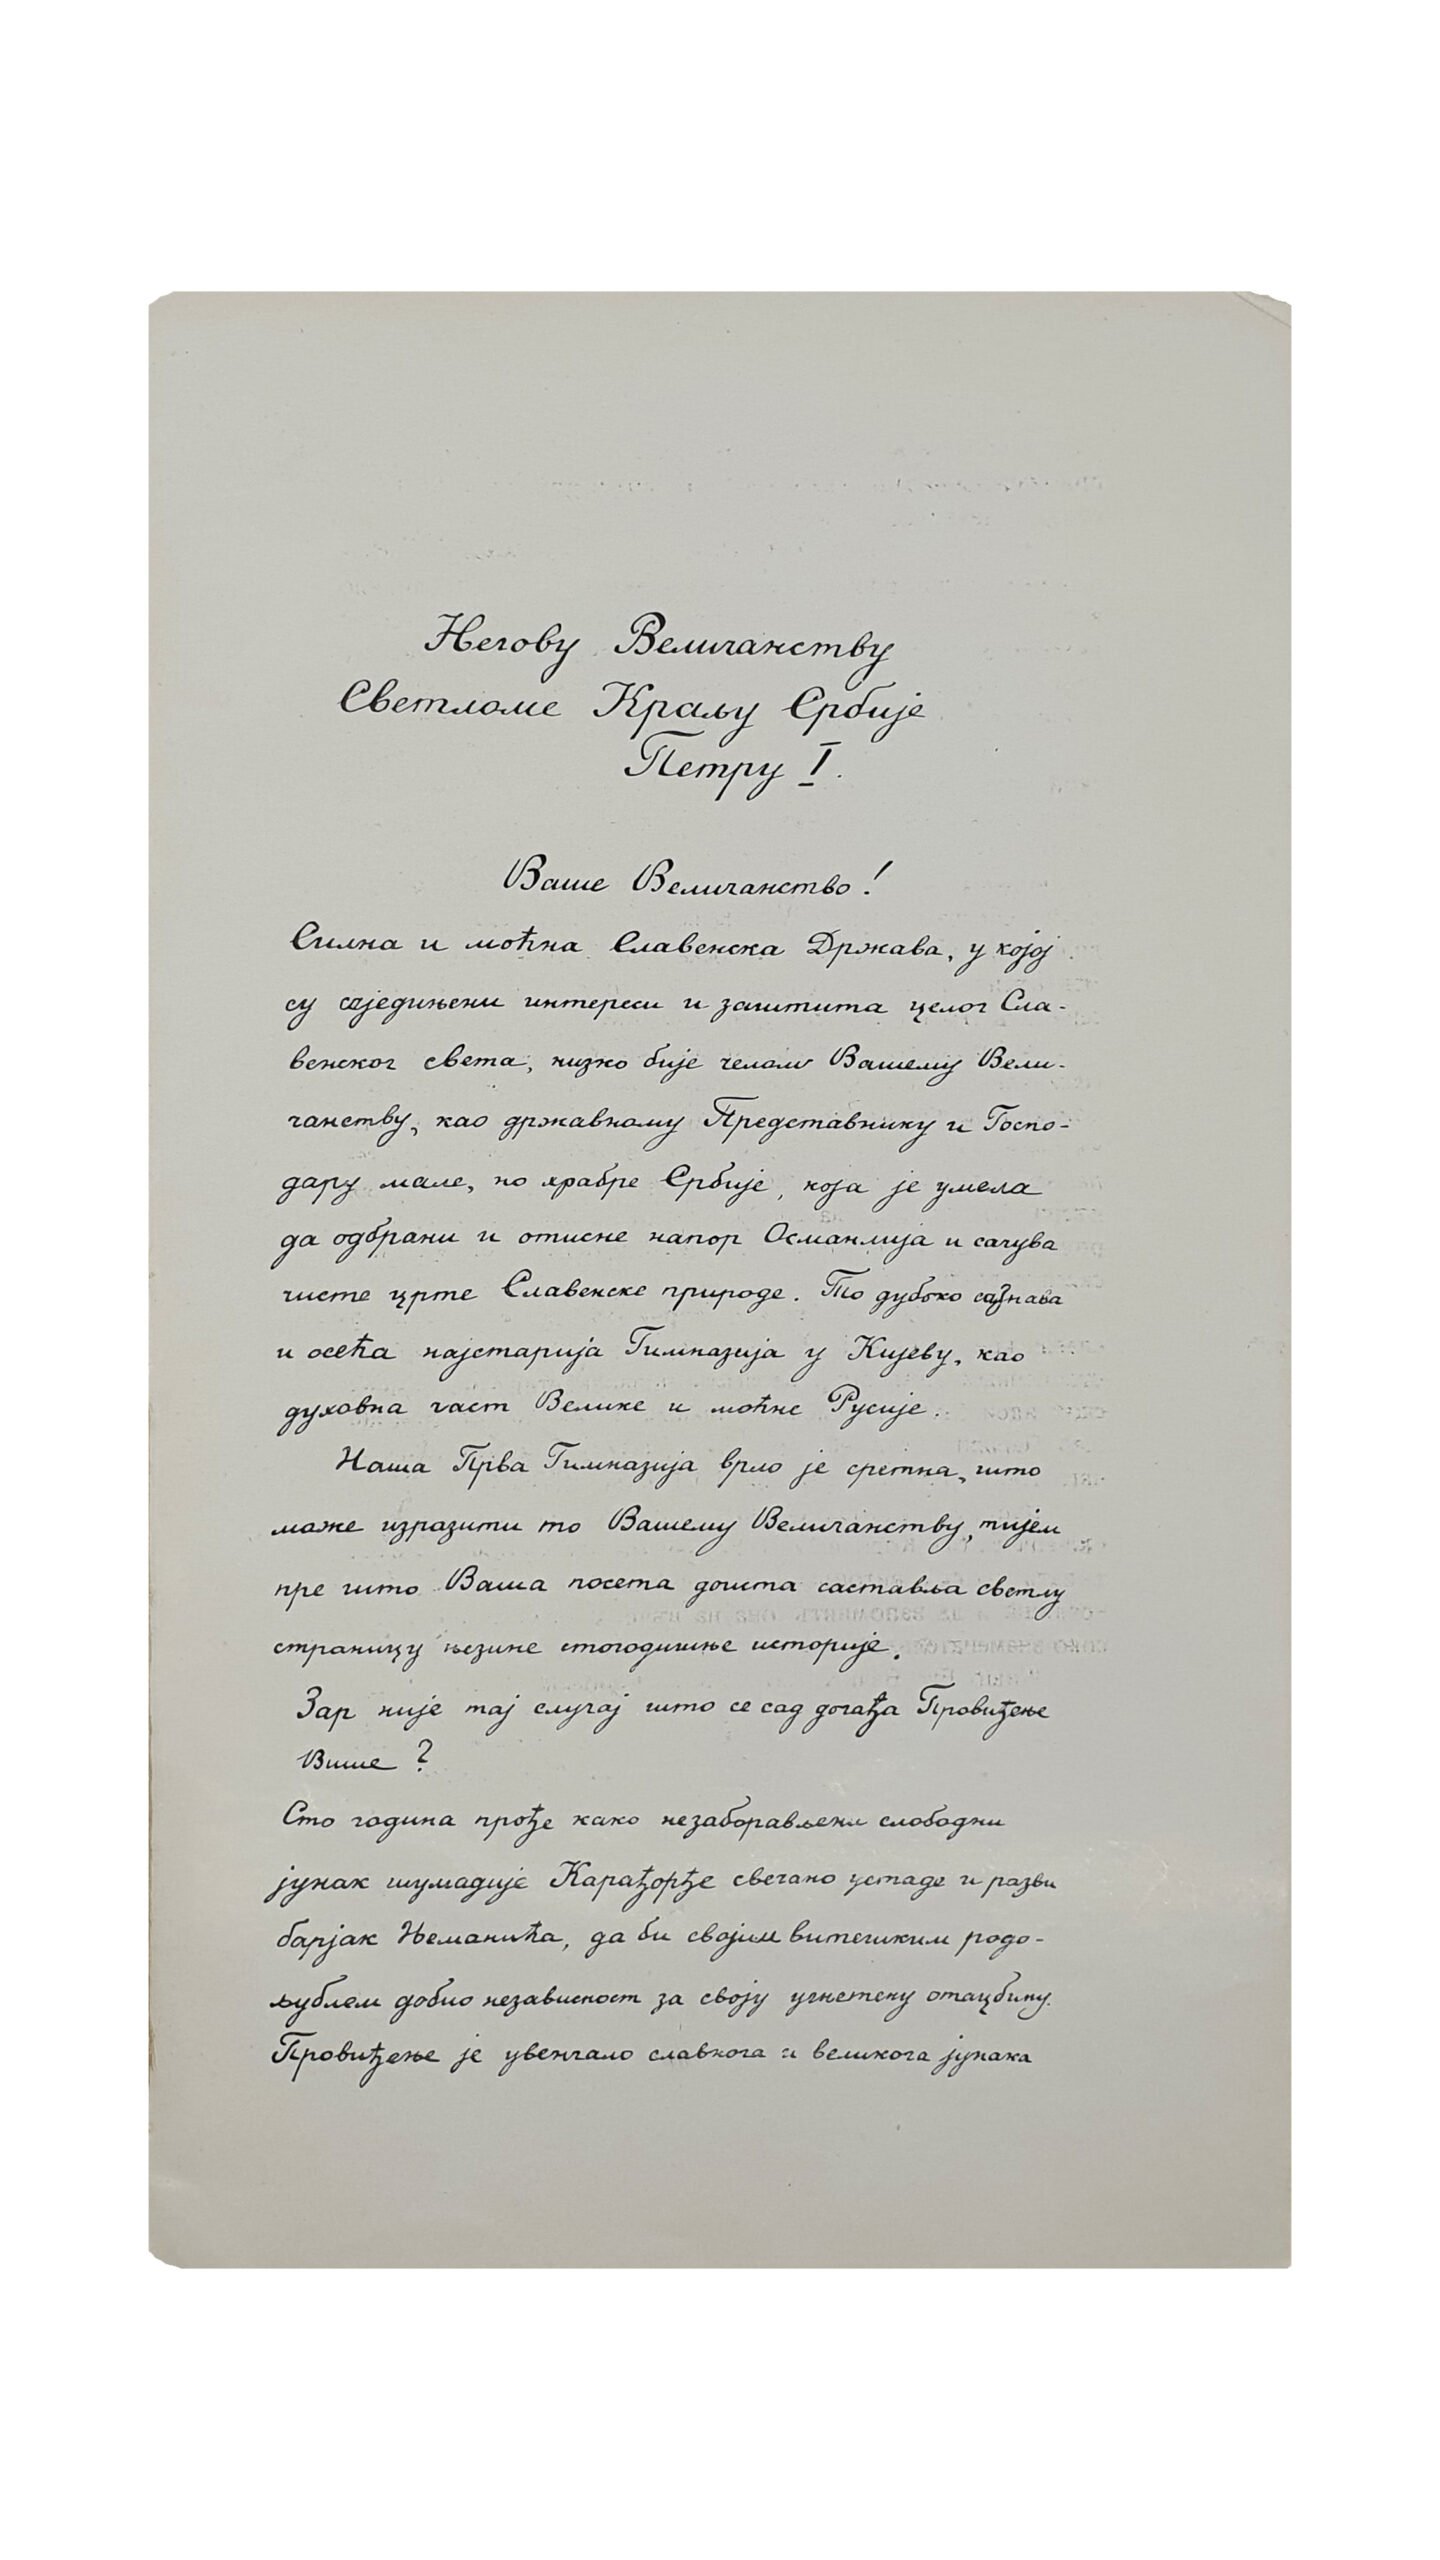 Негову Величанству
Светломе Краљу Србије
Петру I.
Ваше Величанство!
Силна и моћна Славенска Држава, у којој
су сједињени интереси и заштита целог Сла-
венског света, низко бије челом Вашему Вели-
чанству, као државному Представнику и Госпо-
дару мале, но храбре Србије, која је умела
да одбрани и отисне напор Османлија и сачува
чисте црте Славенске природе. То дубоко сазнава
и осећа најстарија Гимназија у Кијеву, као
духовна част Велике и моћне Русије.
Наша Прва Гимназија врло је сретна, што
може изразити то Вашему Величанству, тијем
пре што Ваша посета доиста саставља светлу
страницу њезине стогодишње историје.
Зар није тај случај што се сад догађа Провиђење
Више?
Сто година прође како незаборављени слободни
јунак шумадије Карађорђе свечано устаде и разви
барјак Немањића, да би својим витешким родо-
љублем добио независност за своју угнетену отаџбину.
Провиђење је увенчало славнога и великога јунака